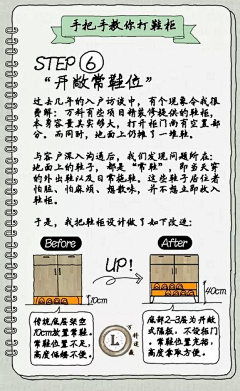 手把手教你打鞋柜
STEP 6
“开敞常鞋位”
过去几年的入户访谈中，有个现象令我很
费解：万科有些项目精装修提供的鞋柜，
本身容量其实够大，打开柜门尚有空置部
分。而同时，地面上仍摊了一堆鞋。
与客户深入沟通后，我们发现问题所在：
地面上的鞋子，都是“常鞋”，即当天穿
的外出鞋以及日常拖鞋。这些鞋子居住者
怕脏、怕麻烦、想散味，并不想立即收入
鞋柜。
于是，我把鞋柜设计做了如下改进：
Before
After
UP!
10cm
40cm
传统底层架空
10cm放置常鞋。
常鞋位置不足，
高度偏矮不便。
L
底部2-3层为开敞
式隔板，不设柜门
。常鞋位置充裕，
高度拿取方便。